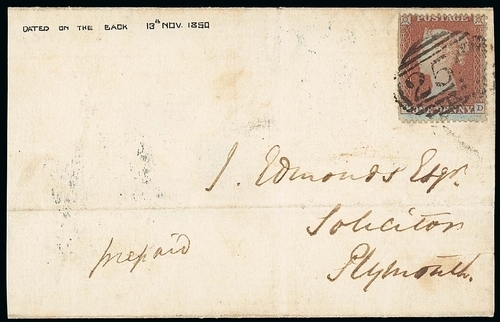 DATED ON THE BACK 13th NOV. 1850
POSTAGE
25
PENNY D
J. Edmonds Esqr.
Solicitor
Plymouth.
prepaid